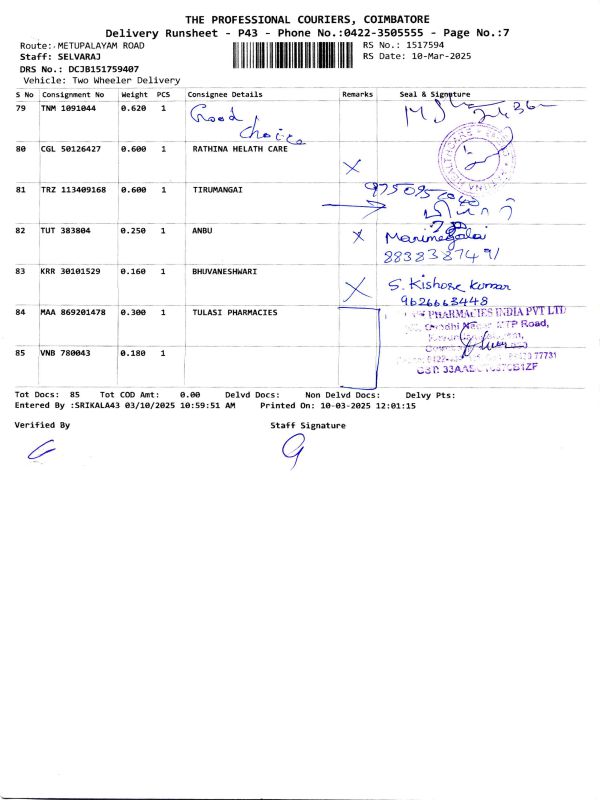 THE PROFESSIONAL COURIERS, COIMBATORE
Delivery Runsheet - P43 - Phone No.:0422-3505555 - Page No.:7
Route: METUPALAYAM ROAD
RS No.: 1517594
Staff: SELVARAJ
RS Date: 10-Mar-2025
DRS No.: DCJB151759407
Vehicle: Two Wheeler Delivery
S No Consignment No Weight PCS Consignee Details Remarks Seal & Signature
79 TNM 1091044 0.620 1 Good
Choice
80 CGL 50126427 0.600 1 RATHINA HELATH CARE
81 TRZ 113409168 0.600 1 TIRUMANGAI
82 TUT 383804 0.250 1 ANBU
Marimegalai
8838387491
83 KRR 30101529 0.160 1 BHUVANESHWARI
S. Kishore Kumar
9626663448
84 MAA 869201478 0.300 1 TULASI PHARMACIES
PHARMACIES INDIA PVT LTD
MTP Road,
85 VNB 780043 0.180 1
77731
Tot Docs: 85 Tot COD Amt: 0.00 Delvd Docs: Non Delvd Docs: Delvy Pts:
Entered By :SRIKALA43 03/10/2025 10:59:51 AM Printed On: 10-03-2025 12:01:15
Verified By Staff Signature